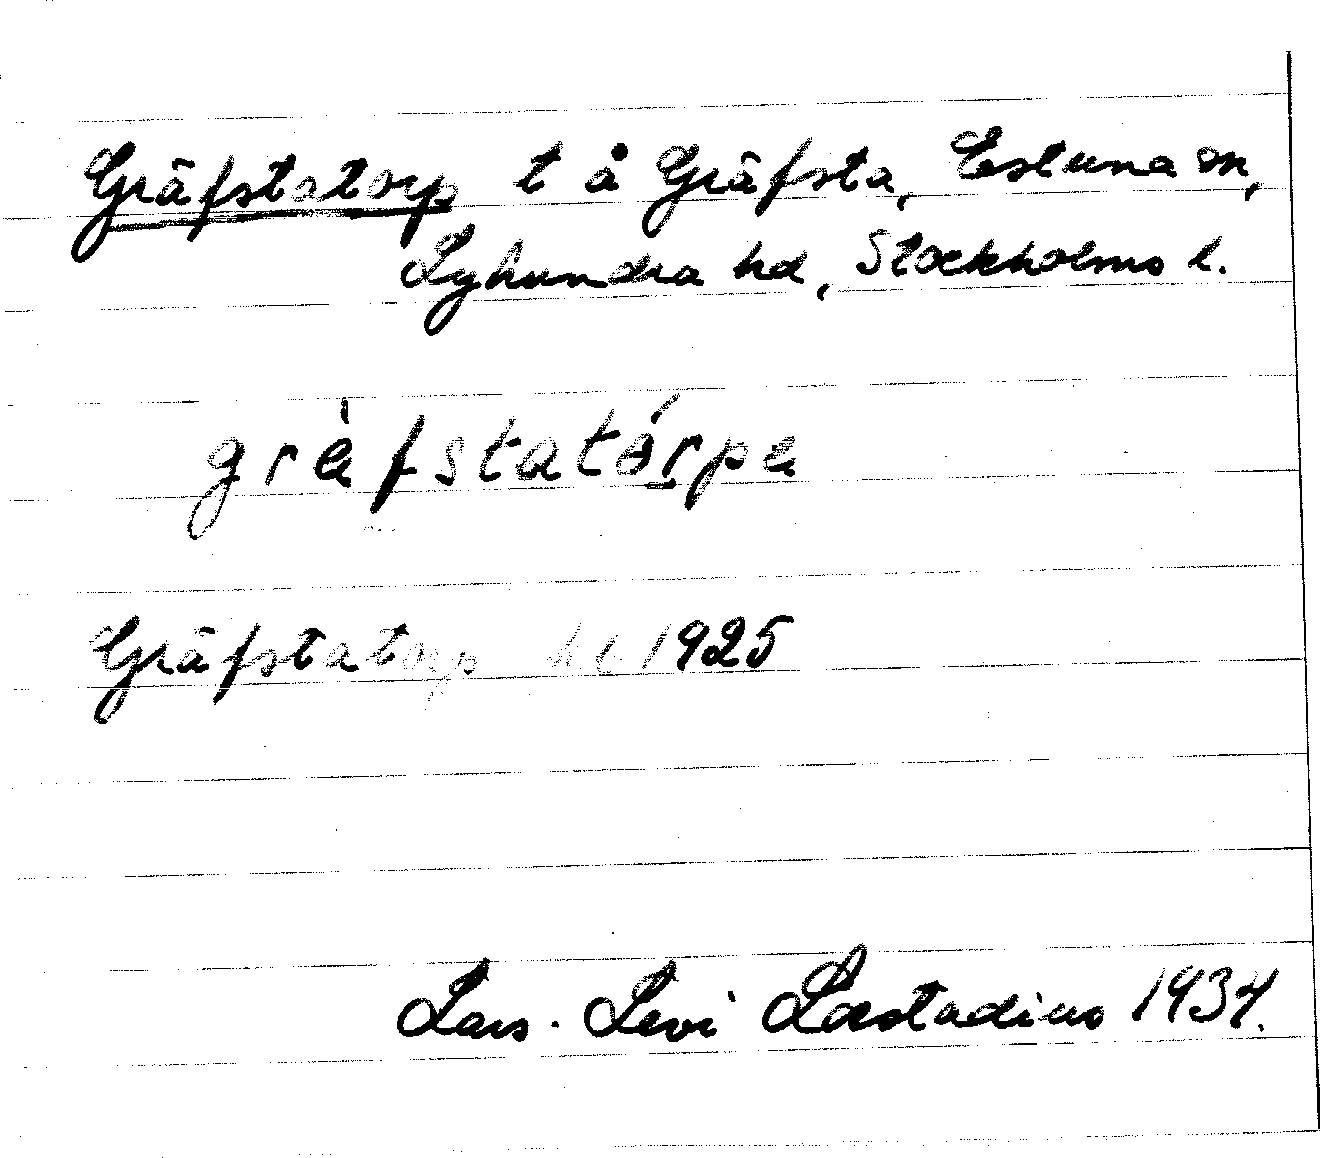 Gräfstatorp t å Gräfsta, Estuna sn,
Lyhundra hd, Stockholms l.
grɛ̀fstatórpɛ
Gräfstatorp hl 1925
Lars-Levi Læstadius 1934.